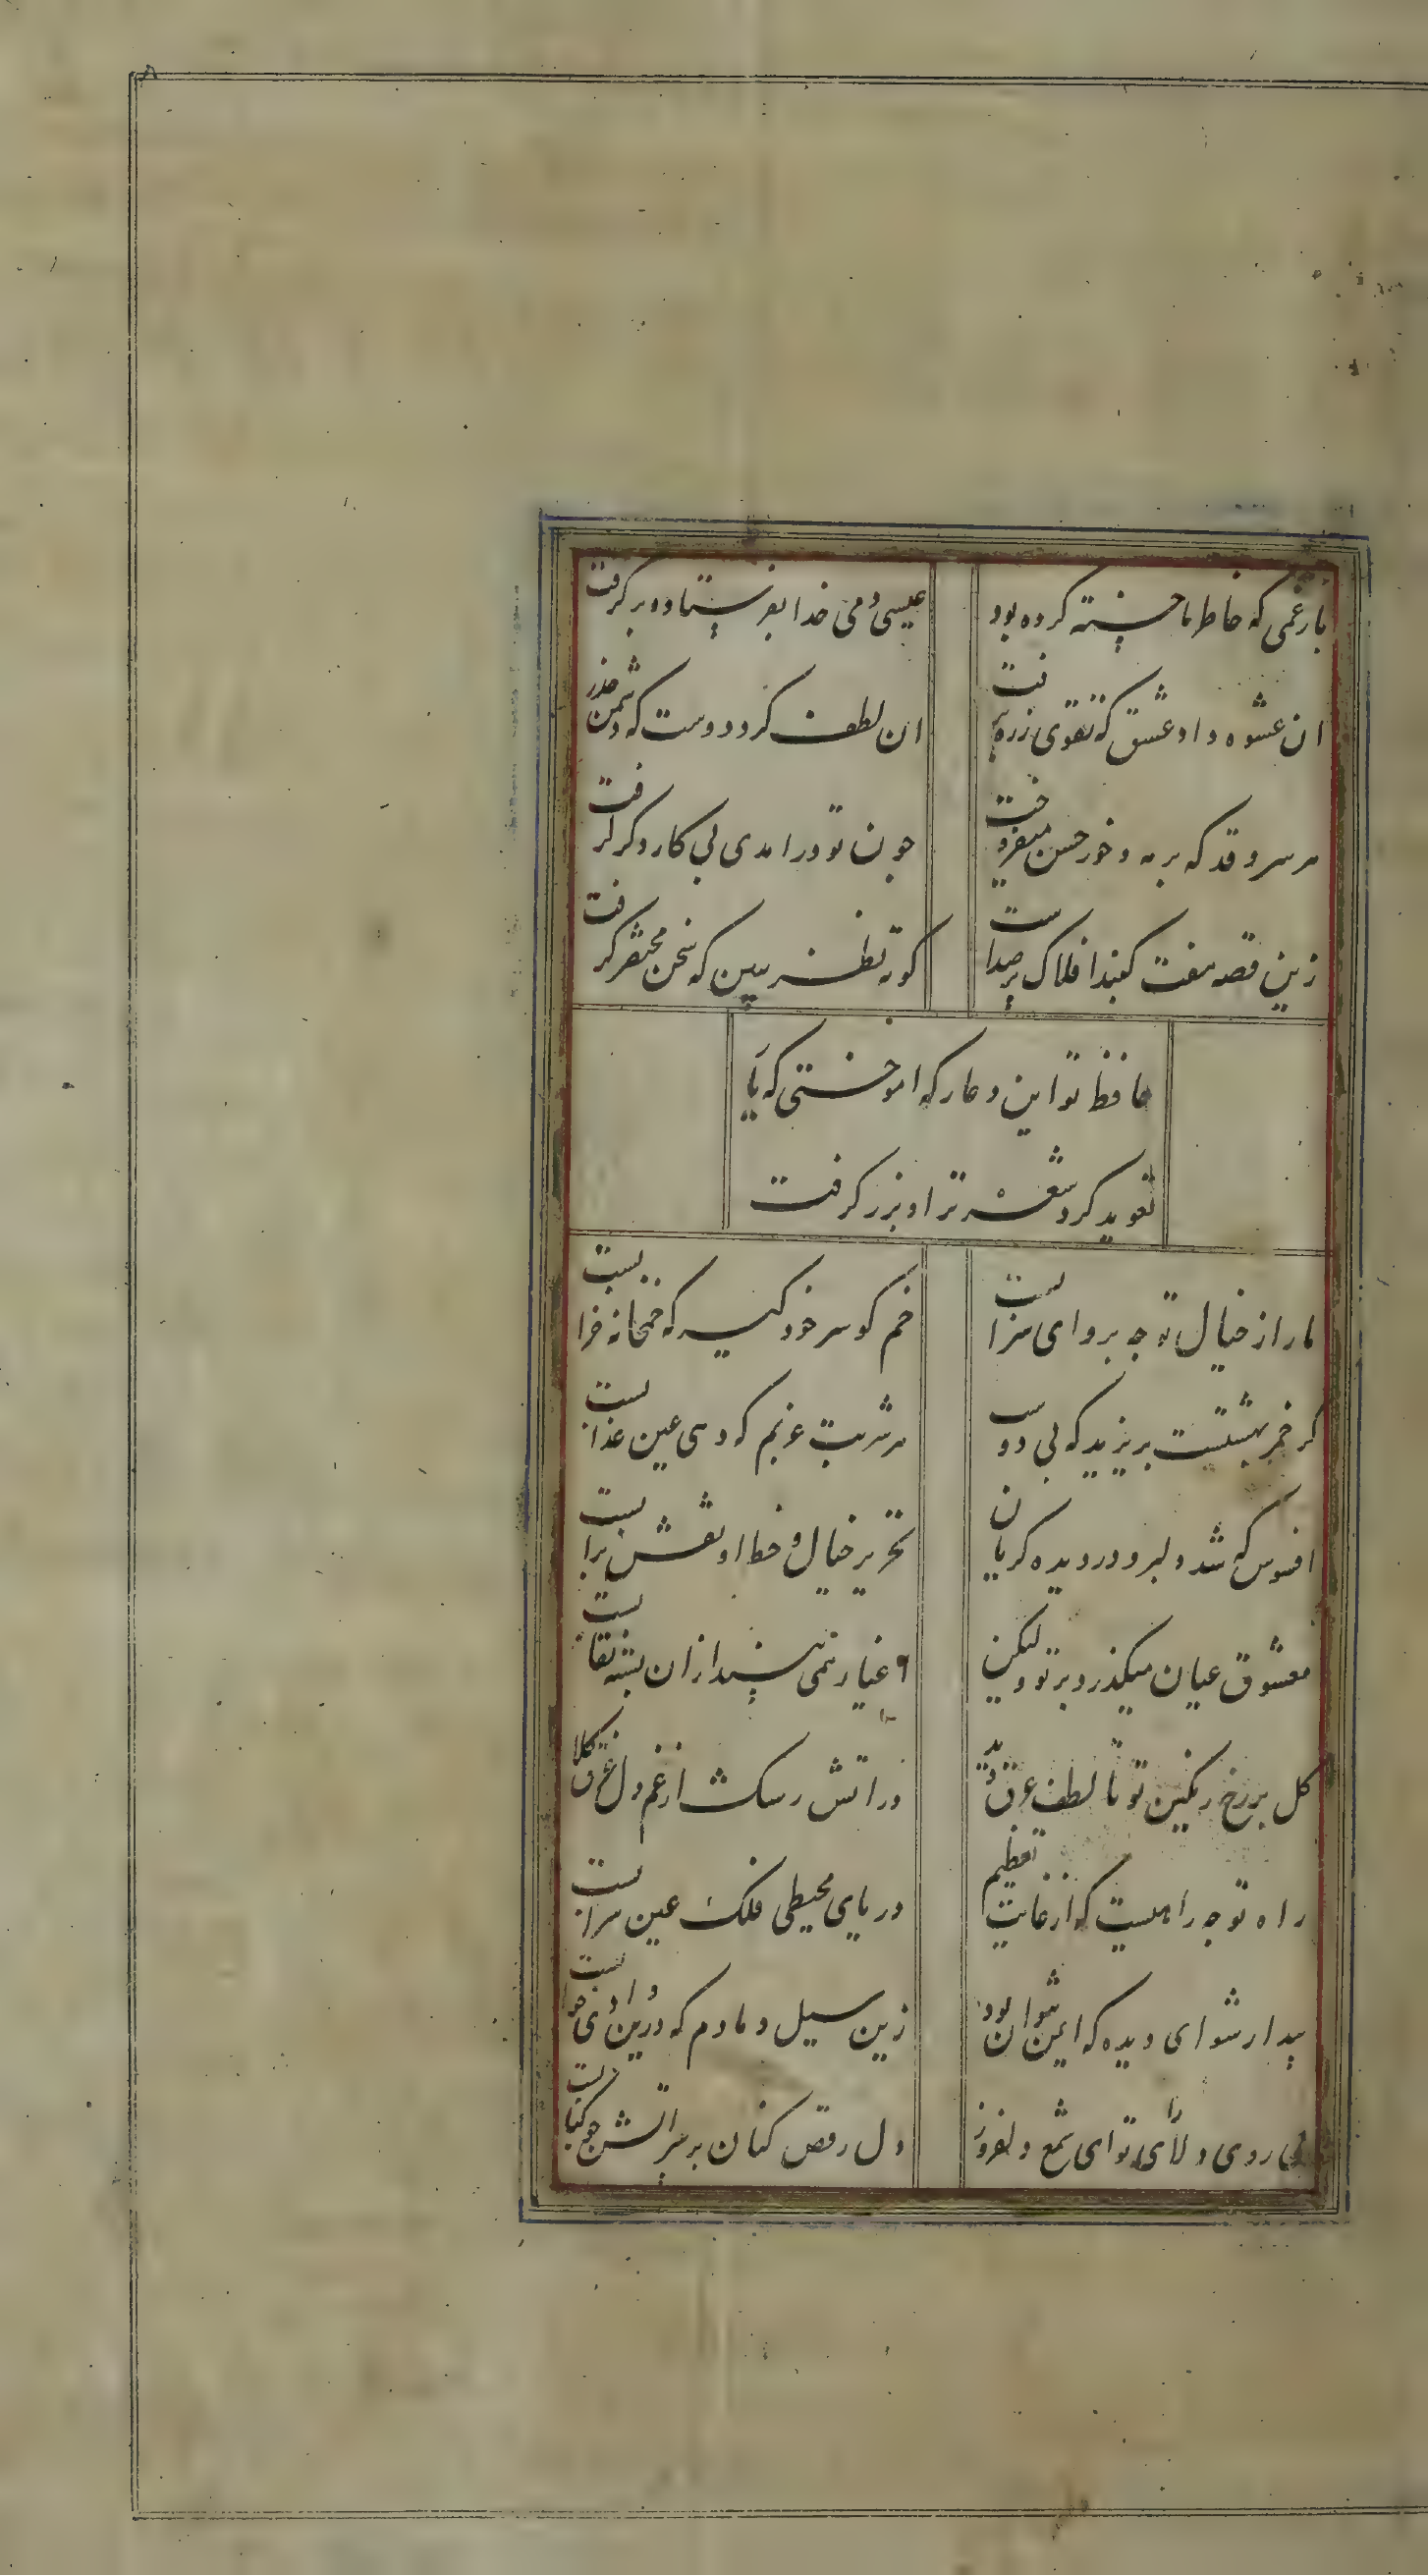 بار غمی که خاطر ما خسته کرده بود
عیسی دمی خدا بفرستاد و برگرفت
ان عشوه داد عشق که تقوی زره برفت
ان لطف کرد دوست که دشمن حذر گرفت
هر سرو قد که بر مه و خور حسن میفروخت
چون تو درامدی پی کار دگر گرفت
زین قصه هفت گنبد افلاک پر صداست
کوته نظر ببین که سخن مختصر گرفت
حافظ تو این دعا ز که اموختی که یار
تعوید کرد شعر ترا و بزر گرفت
ما را ز خیال تو چه پروای شرابست
خم گو سر خود گیر که خمخانه خرابست
گر خمر بهشتست بریزید که بی دوست
هر شربت عذبم که دهی عین عذابست
افسوس که شد دلبر و در دیده گریان
تحریر خیال و خط او نقش برابست
معشوق عیان میگذرد بر تو ولیکن
اغیار نمی بیند ازان بسته نقابست
گل بر رخ رنگین تو تا لطف عرق دید
در اتش رشک از غم دل غرق گلا
راه تو چه راهیست که از غایت تعظیم
دریای محیطی فلک عین سرابست
بیدار شو ای دیده که ایمن نتوان بود
زین سیل دمادم که درین وادی خوابست
بی روی دلارای تو ای شمع دلفروز
دل رقص کنان بر سر اتش چو کبابست